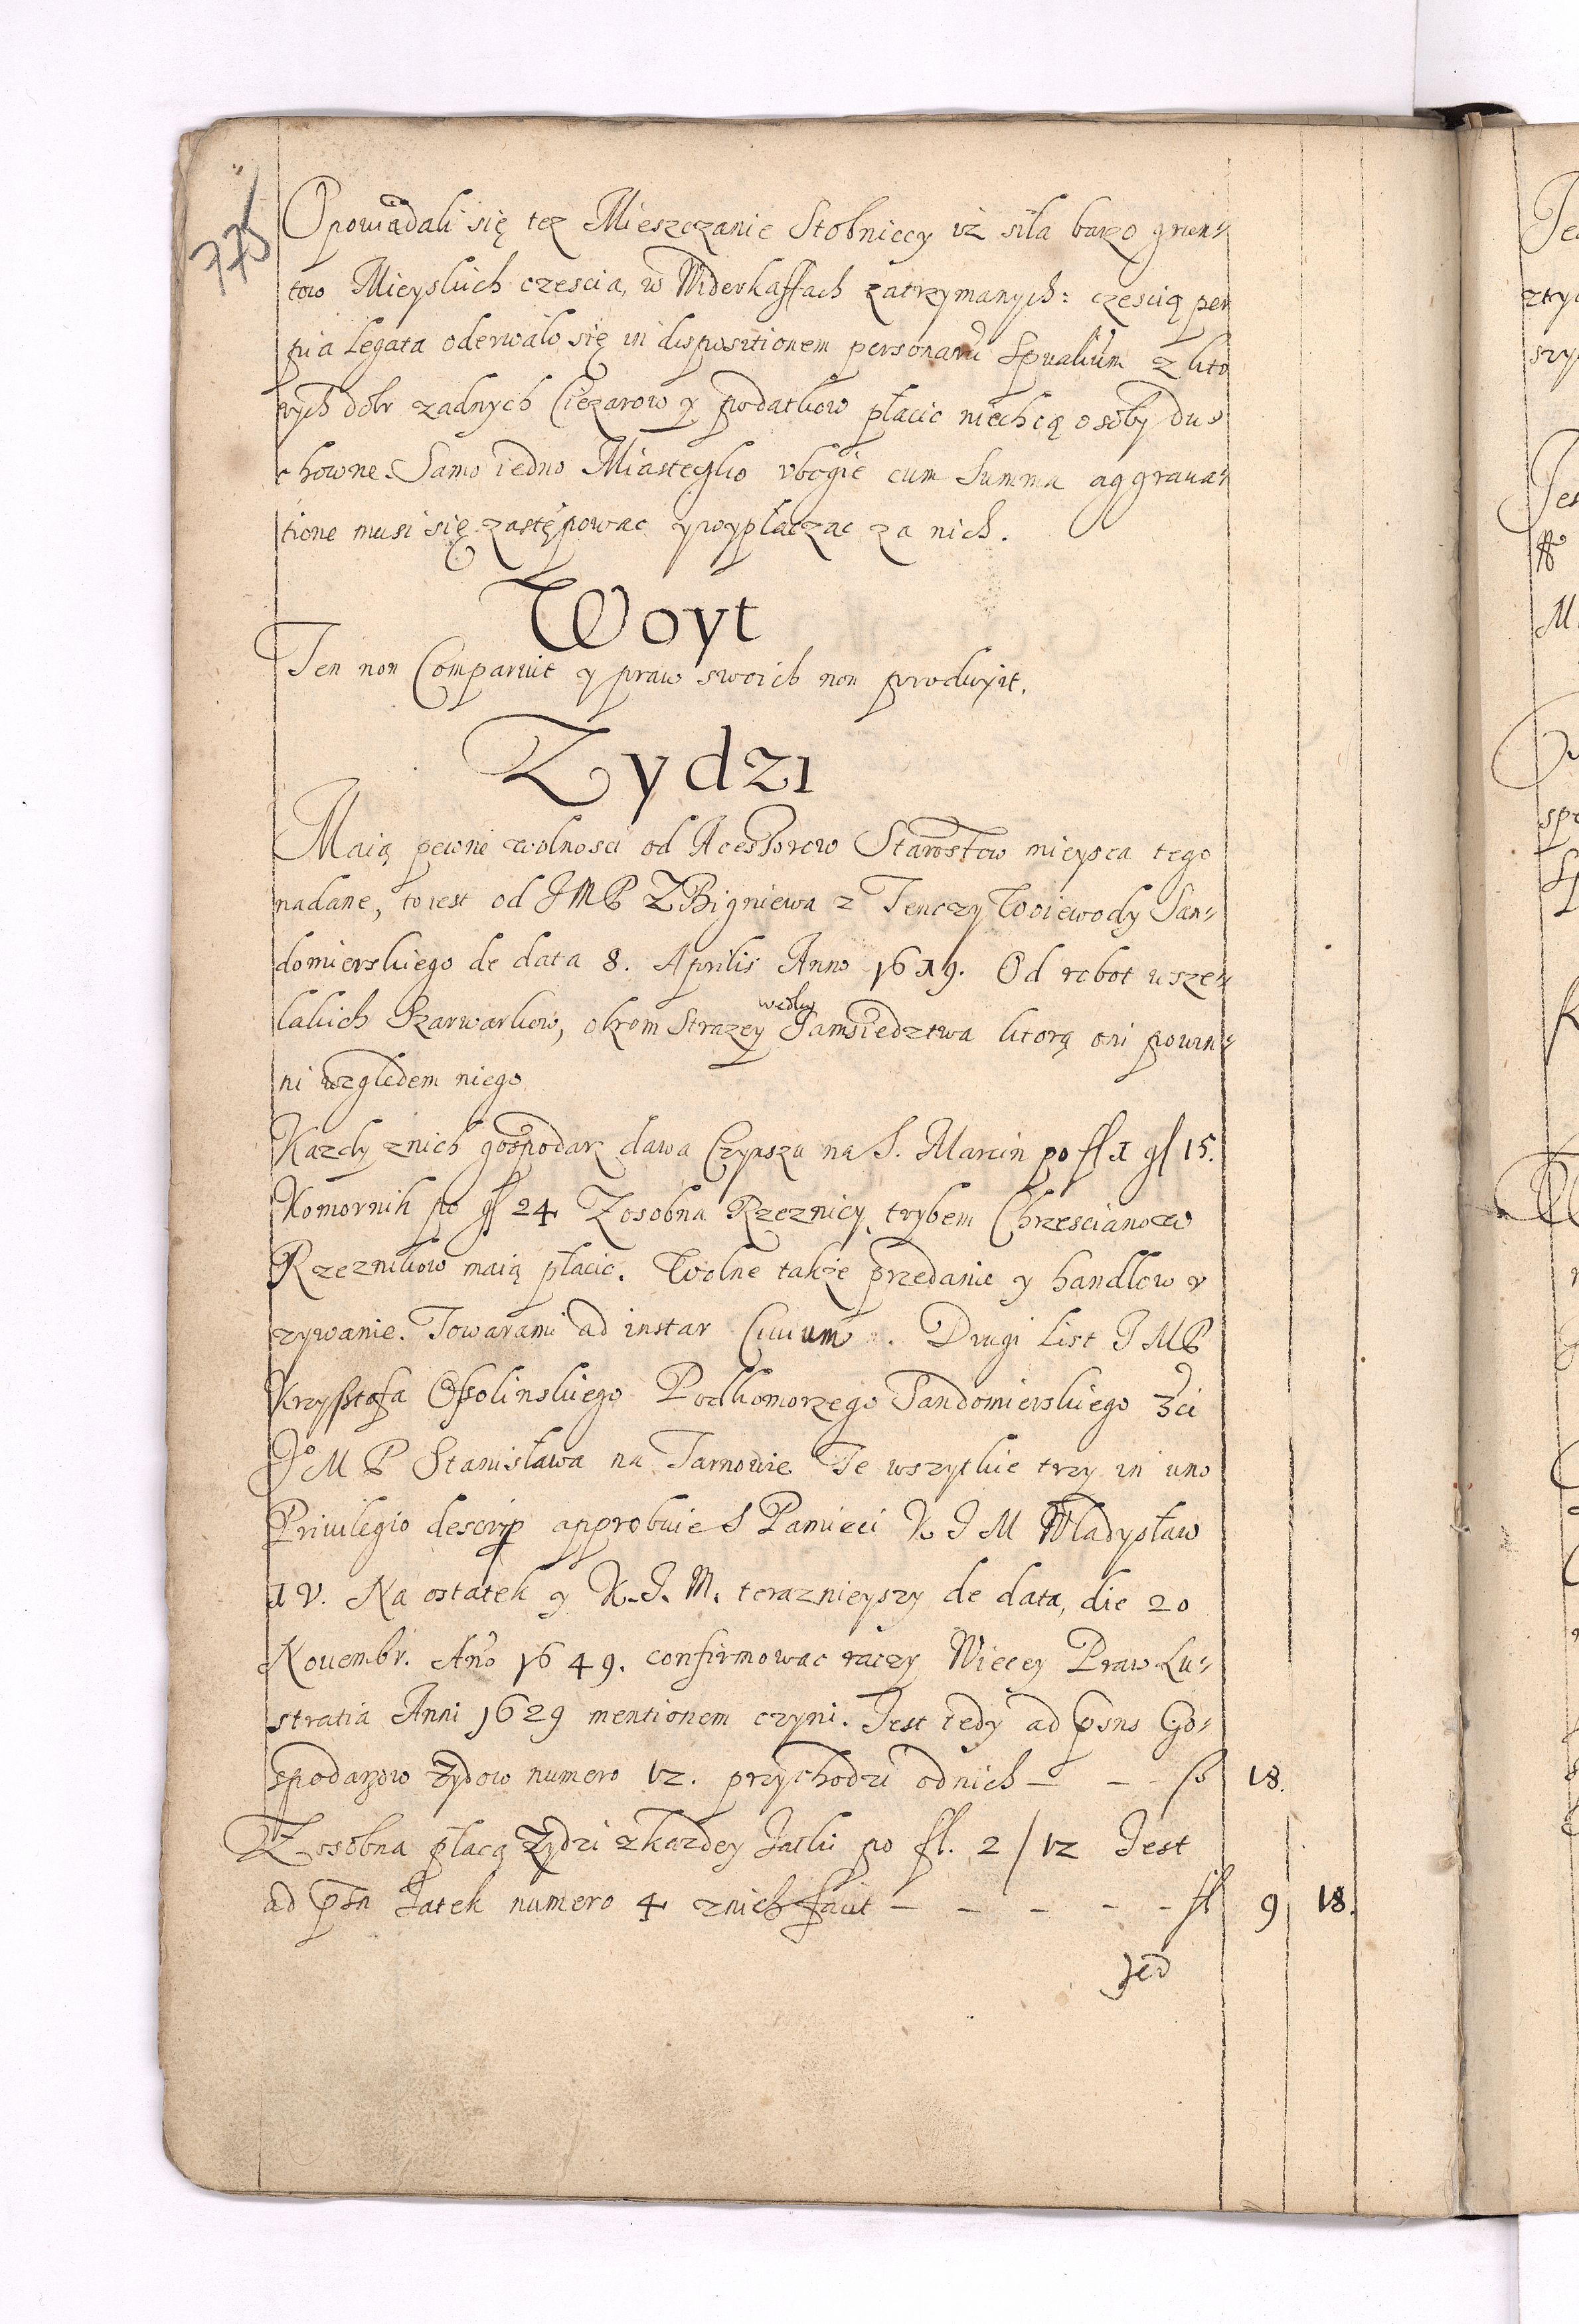 775
Opowiadali się tez Mieszczanie Stobniccy iż siła barzo grun-
tow Mieyskich czescia, w Widerkaffach zatrzymanych: czescią per
pia Legata oderwało się in dispositionem personarũ Spualium z kto
rych dobr zadnych Ciezarow y podatkow płacic niechcą osoby du-
chowne. Samo iedno Miasteczko vbogie cum Summa aggraua-
tione musi się zastępowac y wypłaczac za nich.
Woyt
Ten non Comparuit y praw swoich non produxit.
Zydzi
Maią pewne wolnosci od Acessorow Starostow mieysca tego
nadane, to iest od JMP ZBigniewa z Tenczy Woiewody San-
domierskiego de data 8. Aprilis Anno 1619. Od robot wsze-
lakich Szarwarkow, okrom Strazey wedlug Samsiedztwa ktorą oni powin-
ni względem niego
Kazdy znich gospodarz dawa Czynszu na S. Marcin po fl 1 gl 15.
Komornik po gl 24 Zosobna Rzeznicy trybem Chrzescianow
Rzeznikow maią płacic. Wolne także przedanie y handlow v
zywanie. Towarami ad instar Ciuium. Drugi List JMP
Krzysstofa Ossolinskiego Podkomorzego Sandomierskiego 3ci
Jº M P Stanisława na Tarnowie Te wszytkie trzy in uno
Priuilegio descrip approbuie S Pamieci K J M Władysław
IV. Na ostatek y K. J. M. teraznieyszy de data, die 20
Nouembr. Año 1649. confirmowac raczy Wiecey Praw Lu-
stratia Anni 1629 mentionem czyni. Jest tedy ad psns Go-
spodarzow Zydow numero 12. przychodzi odnich — — fl 18.
Zosobna płacą Zydzi zkazdey Jatki po fl. 2/12 Jest
ad psn Jatek numero 4 znich facit — — — — — fl 9 18.
Jed